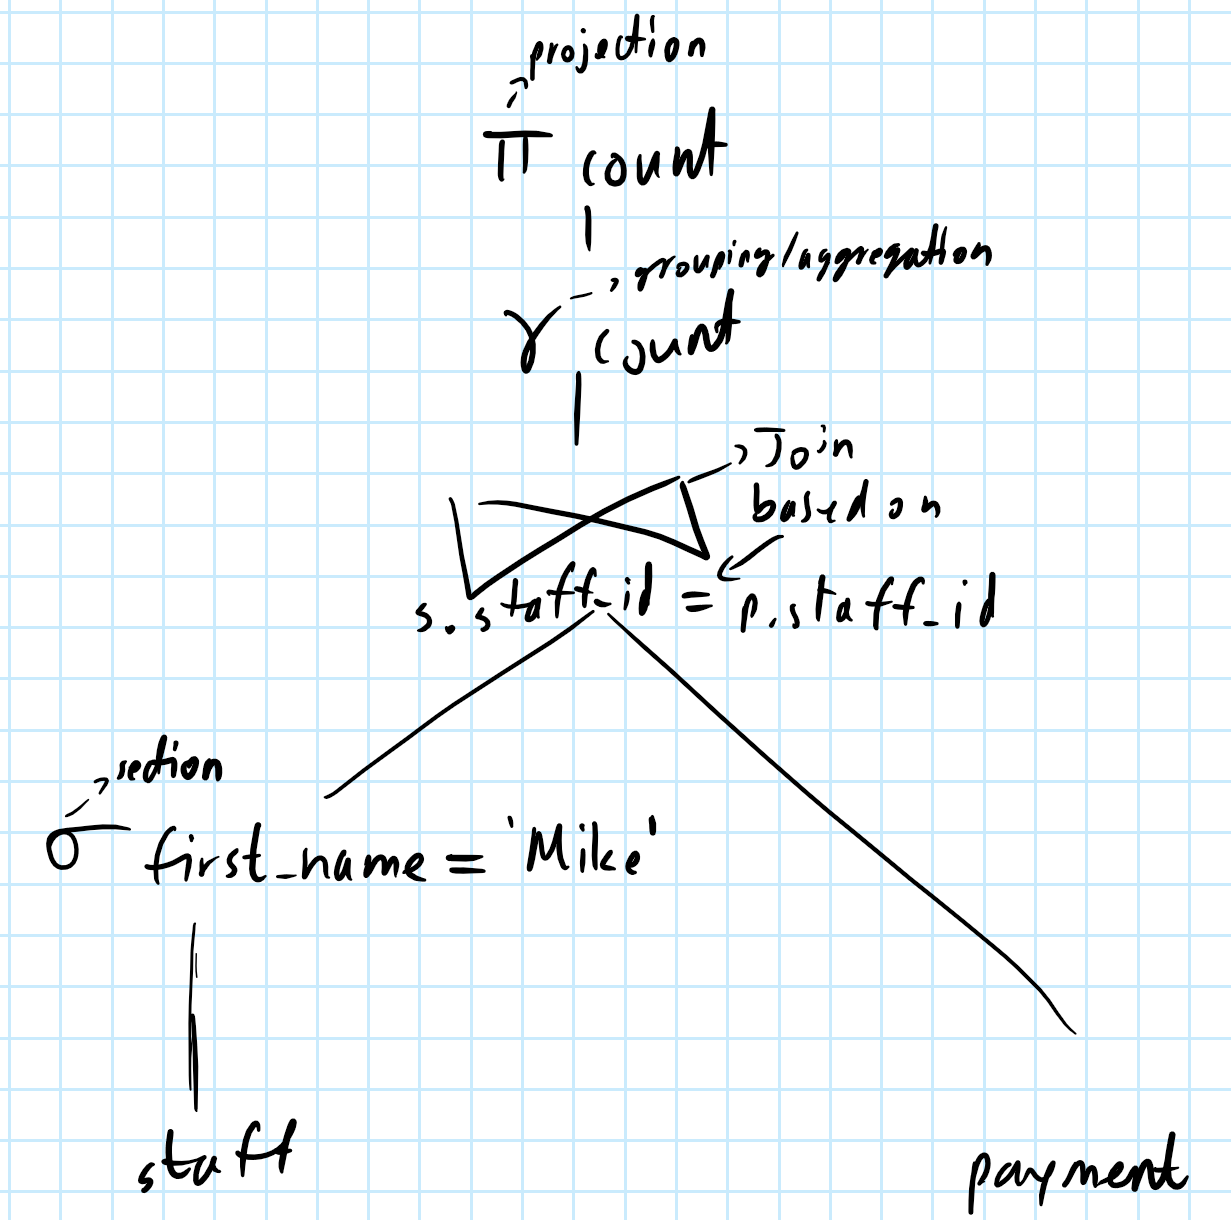 projection
π count
grouping/aggregation
γ count
Join
based on
s.staff_id = p.staff_id
section
σ first_name = 'Mike'
staff
payment